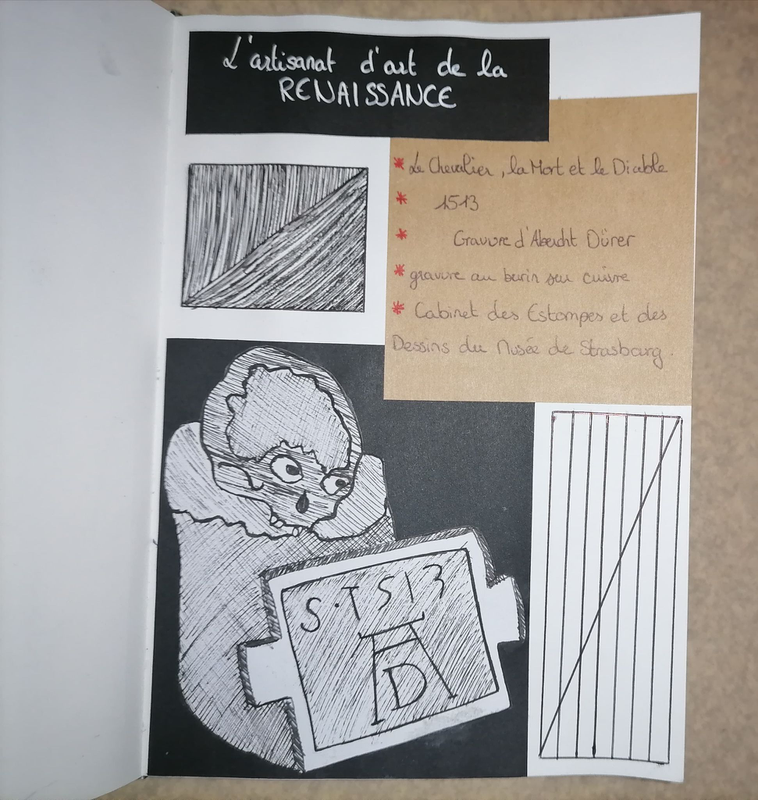 L'artisanat d'art de la
RENAISSANCE
* Le Chevalier, la Mort et le Diable
* 1513
* Gravure d'Abercht Dürer
* gravure au burin sur cuivre
* Cabinet des Estampes et des
Dessins du Musée de Strasbourg.
S. 1513
AD